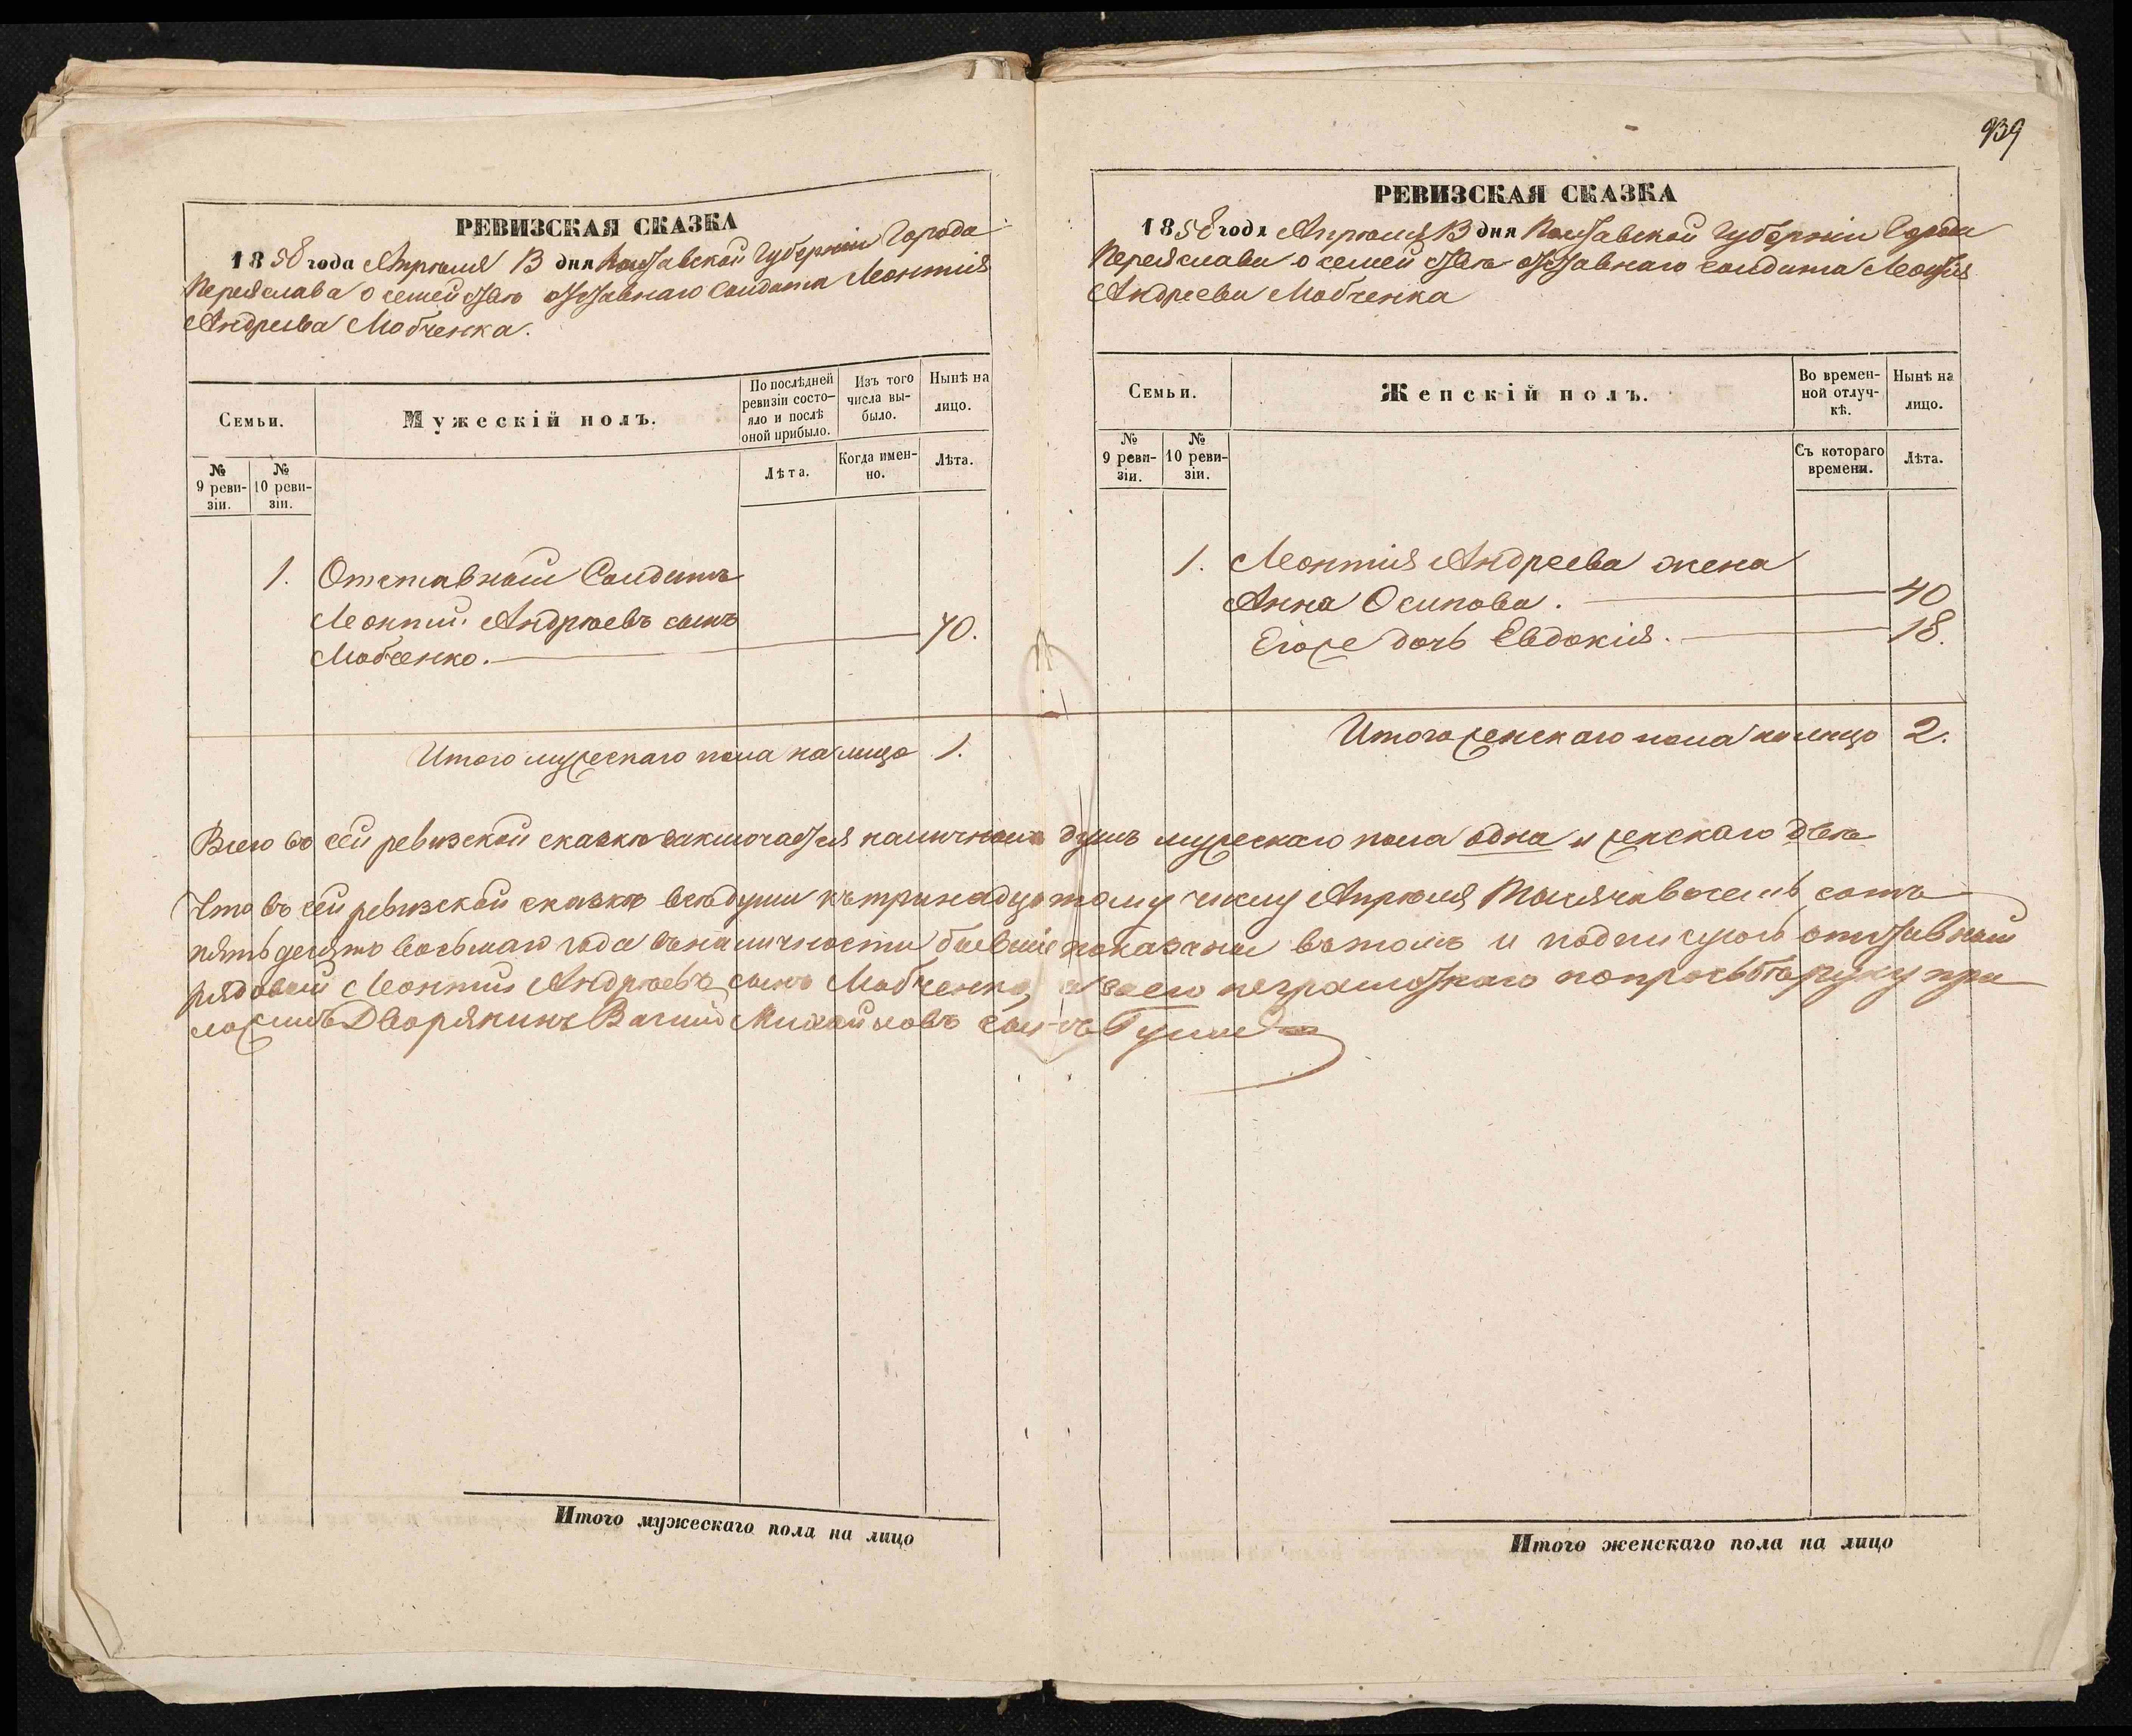 939
РЕВИЗСКАЯ СКАЗКА
1858 года Апрѣля 13 дня Полтавской Губерніи Города
Переяслава о семействѣ отставнаго Солдата Леонтія
Андреева Мовченка.
Семьи.
Мужескій полъ.
По послѣдней ревизіи состояло и послѣ оной прибыло.
Изъ того числа выбыло.
Нынѣ на лицо.
№ 9 ревизіи.
№ 10 ревизіи.
Лѣта.
Когда именно.
Лѣта.
1. Отставный Солдатъ
Леонтий Андрѣевъ сынъ
Мовченко. 70.
Итого мужескаго пола на лицо 1.
РЕВИЗСКАЯ СКАЗКА
1858 года Апрѣля 13 дня Полтавской Губерніи Города
Переяслава о семействѣ отставнаго солдата Леонтія
Андреева Мовченка
Семьи.
Женскій полъ.
Во временной отлучкѣ.
Нынѣ на лицо.
№ 9 ревизіи.
№ 10 ревизіи.
Съ котораго времени.
Лѣта.
1. Леонтія Андреева жена
Анна Осипова. 40
Егоже дочь Евдокія. 18.
Итого женскаго пола на лицо 2.
Всего въ сей ревизской сказкѣ заключается наличныхъ душъ мужескаго пола одна и женскаго двѣ
Что въ сей ревизской сказкѣ всѣ души къ тринадцатому числу Апрѣля Тысяча восемь сотъ
пятьдесятъ восьмаго года въ наличности бывшіе показаны въ томъ и подписуюсь отставный
рядовый Леонтий Андрѣевъ сынъ Мовченко, а вместо его неграмотнаго по просьбѣ руку при
ложилъ Дворянинъ Михайловъ сынъ
Итого мужескаго пола на лицо
Итого женскаго пола на лицо